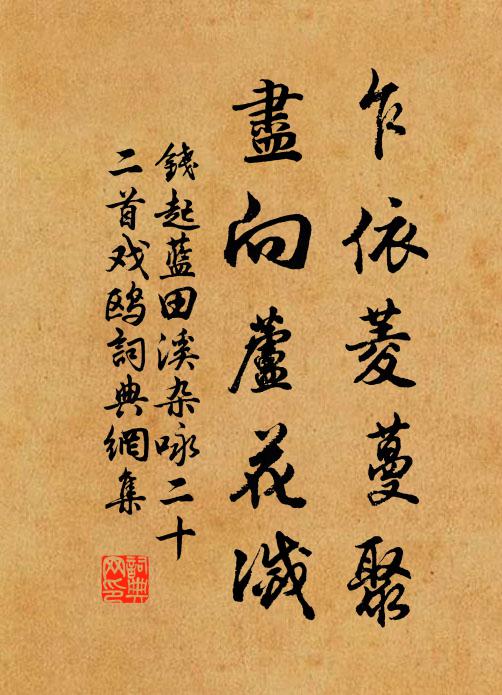 乍依菱蔓聚
盡向蘆花滅
錢起藍田溪杂咏二十
二首戏鸥詞典網集
詞典網印